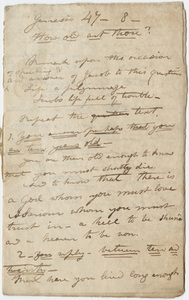 Genesis 47 - 8 -
How old art thou?
Remark upon the occasion
answer of Jacob to this question
Life a pilgrimage
Jacobs life full of trouble -
Repeat the text
1 you that you
You are then old enough to know
that you must shortly die
and to know that there is
a God whom you must love
a Saviour whom you must
trust in - a hell to be shun'd
and a heaven to be won
2 - you reply - between ten and
think have you lived long enough